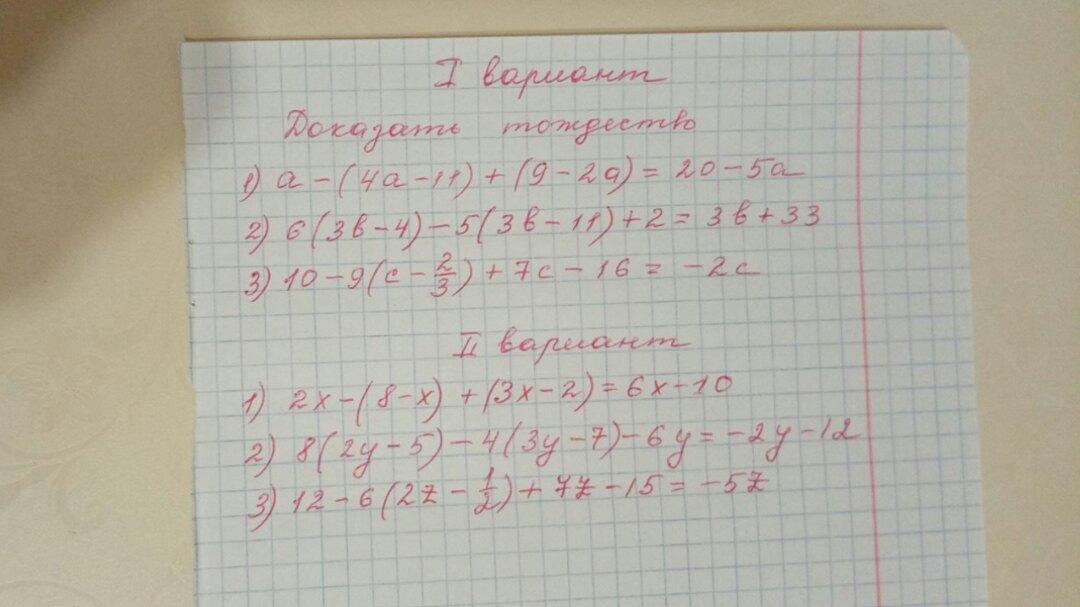 I вариант
Доказать тождество
1) a - (4a - 11) + (9 - 2a) = 20 - 5a
2) 6(3b - 4) - 5(3b - 11) + 2 = 3b + 33
3) 10 - 9(c - 2/3) + 7c - 16 = -2c
II вариант
1) 2x - (8 - x) + (3x - 2) = 6x - 10
2) 8(2y - 5) - 4(3y - 7) - 6y = -2y - 12
3) 12 - 6(2z - 1/2) + 7z - 15 = -5z